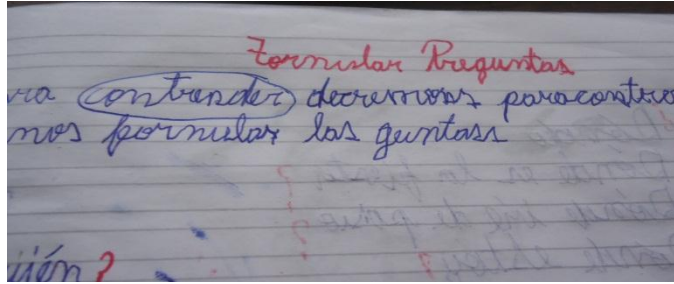 Formular Preguntas
ra contrender decremos paracontro
mos formular las guntass
uién?